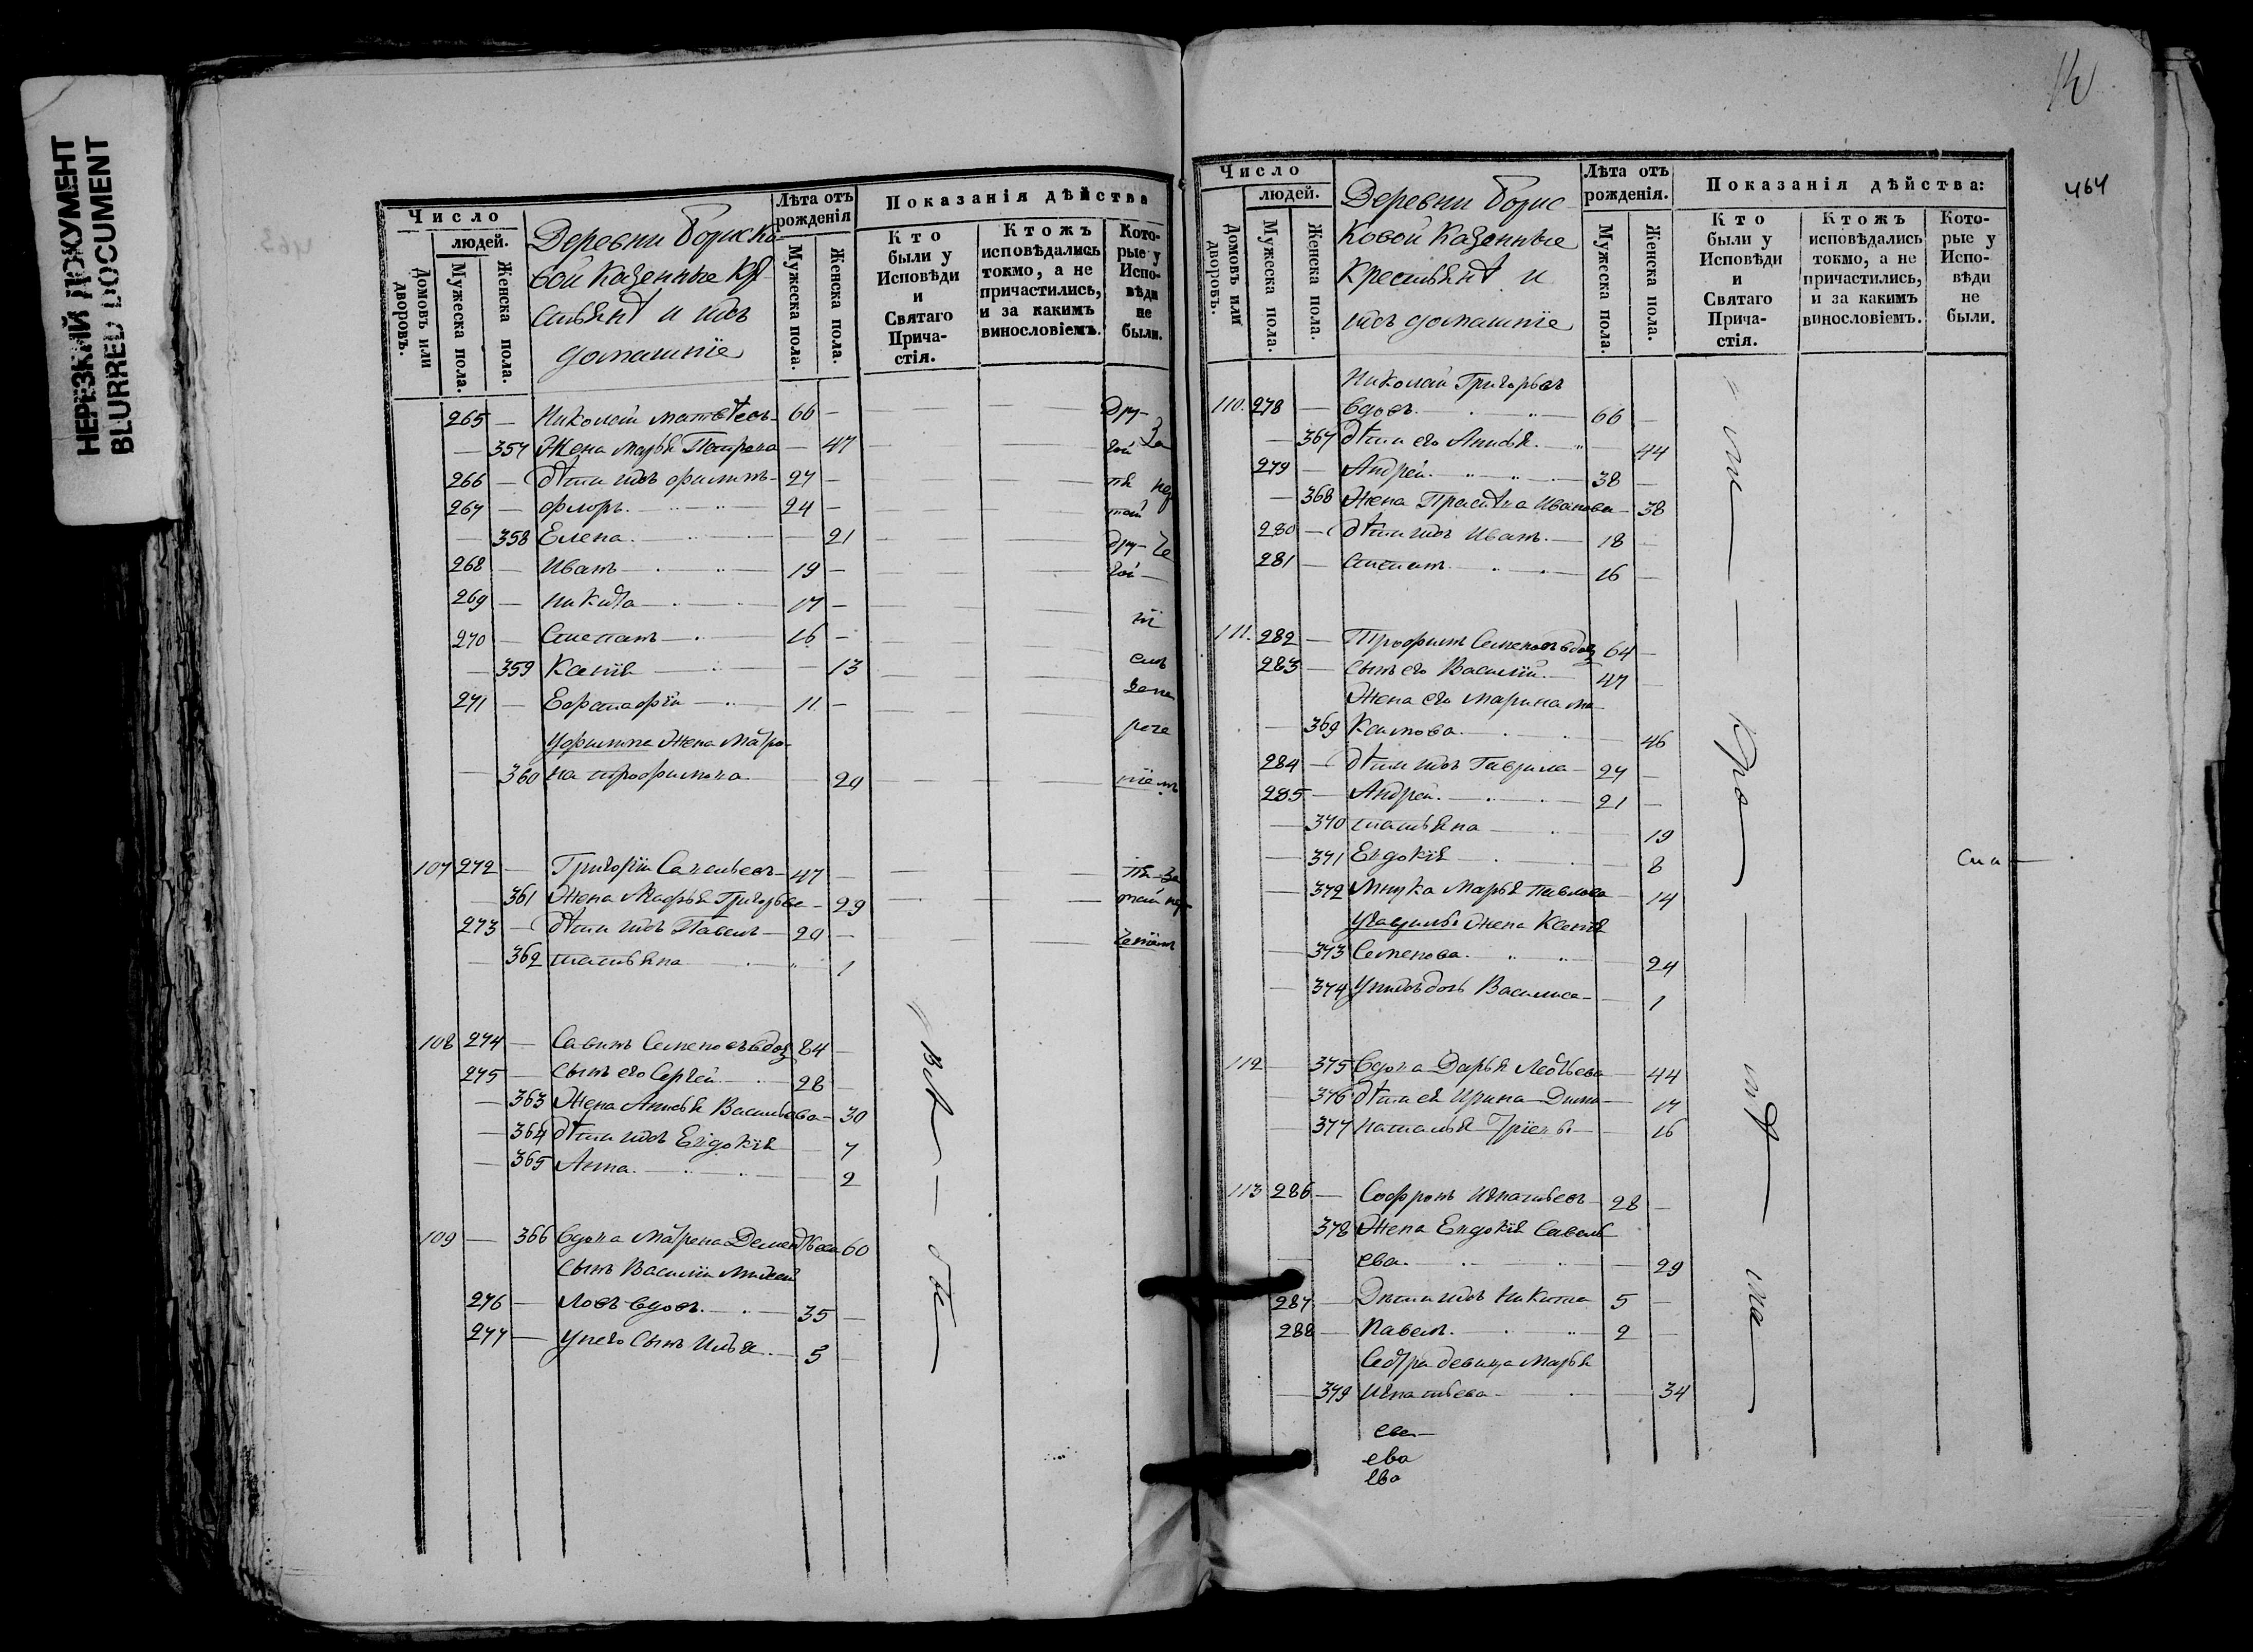 НЕРЕЗКИЙ ДОКУМЕНТ
BLURRED DOCUMENT
Число
людей.
Домовъ или дворовъ.
Мужеска пола.
Женска пола.
Деревни Бориско-
вой Казенные Кре
стьянѣ и ихъ
домашнїе
Лѣта отъ рожденія
Мужеска пола.
Женска пола.
Показанія дѣйства
Кто были у Исповѣди и Святаго Прича-стія.
Ктожъ исповѣдались токмо, а не причастились, и за какимъ винословіемъ.
Кото-рые у Испо-вѣди не были.
265 — Николай Матвѣевъ — 66 —
— 357 Жена Марья Петрова — 47
266 — дѣти ихъ Филиппъ — 27 —
267 — Флоръ — 24 —
— 358 Елена — 21
268 — Иванъ — 19 —
269 — Никита — 17 —
270 — Степанъ — 16 —
— 359 Ксенїя — 13
271 — Евстафїй — 11 —
У Филиппа Жена Матро-
— 360 на Трофимова — 20
107 272 — Григорїй Савельевъ — 47 —
— 361 Жена Марфа Григорьева — 29
273 — дѣти ихъ Павелъ — 20 —
— 362 Татьяна — 1
108 274 — Савинъ Семеновъ вдовъ 84 —
275 — Сынъ его Сергей — 28 —
— 363 Жена Анисья Васильева — 30
— 364 дѣти ихъ Евдокїя — 7
— 365 Анна — 2
109 — 366 Вдова Матрена Дементьева 60
Сынъ Василїй Михай
276 — ловъ вдовъ — 35 —
277 — У него Сынъ Илья — 5 —
464
Число
людей.
Домовъ или дворовъ.
Мужеска пола.
Женска пола.
Деревни Борис-
ковой Казенные
Крестьянѣ и
ихъ домашнїе
Лѣта отъ рожденія.
Мужеска пола.
Женска пола.
Показанія дѣйства:
Кто были у Исповѣди и Святаго Прича-стія.
Ктожъ исповѣдались токмо, а не причастились, и за какимъ винословіемъ.
Кото-рые у Испо-вѣди не были.
Николай Григорьевъ
110. 278 — вдовъ — 66 —
— 367 дѣти его Анисья — 44
279 — Андрей — 38 —
— 368 Жена Прасковья Иванова — 38
280 — дѣти ихъ Иванъ — 18 —
281 — Степанъ — 16 —
111. 282 — Трофимъ Семеновъ вдовъ 64 —
283 — Сынъ его Василїй — 47 —
Жена его Марина Ма
— 369 Ксимова — 46
284 — дѣти ихъ Гаврила — 27 —
285 — Андрей — 21 —
— 370 Татьяна — 19
— 371 Евдокїя — 8
— 372 Внука Марья Павлова — 14
У Гаврилы Жена Ксенїя
— 373 Семенова — 24
— 374 У нихъ дочь Василиса — 1
112 — 375 Вдова Дарья — 44
— 376 дѣти ея Ирина — 17
— 377 Наталья — 16
113 286 — Софронъ Игнатьевъ — 28 —
378 Жена Евдокїя Савель
— ева — 29
287 — Дѣти ихъ Никита 5 —
288 — Павелъ — 2 —
Сестра девица Марья
— 379 Игнатьева — 34
ева
ева
ева